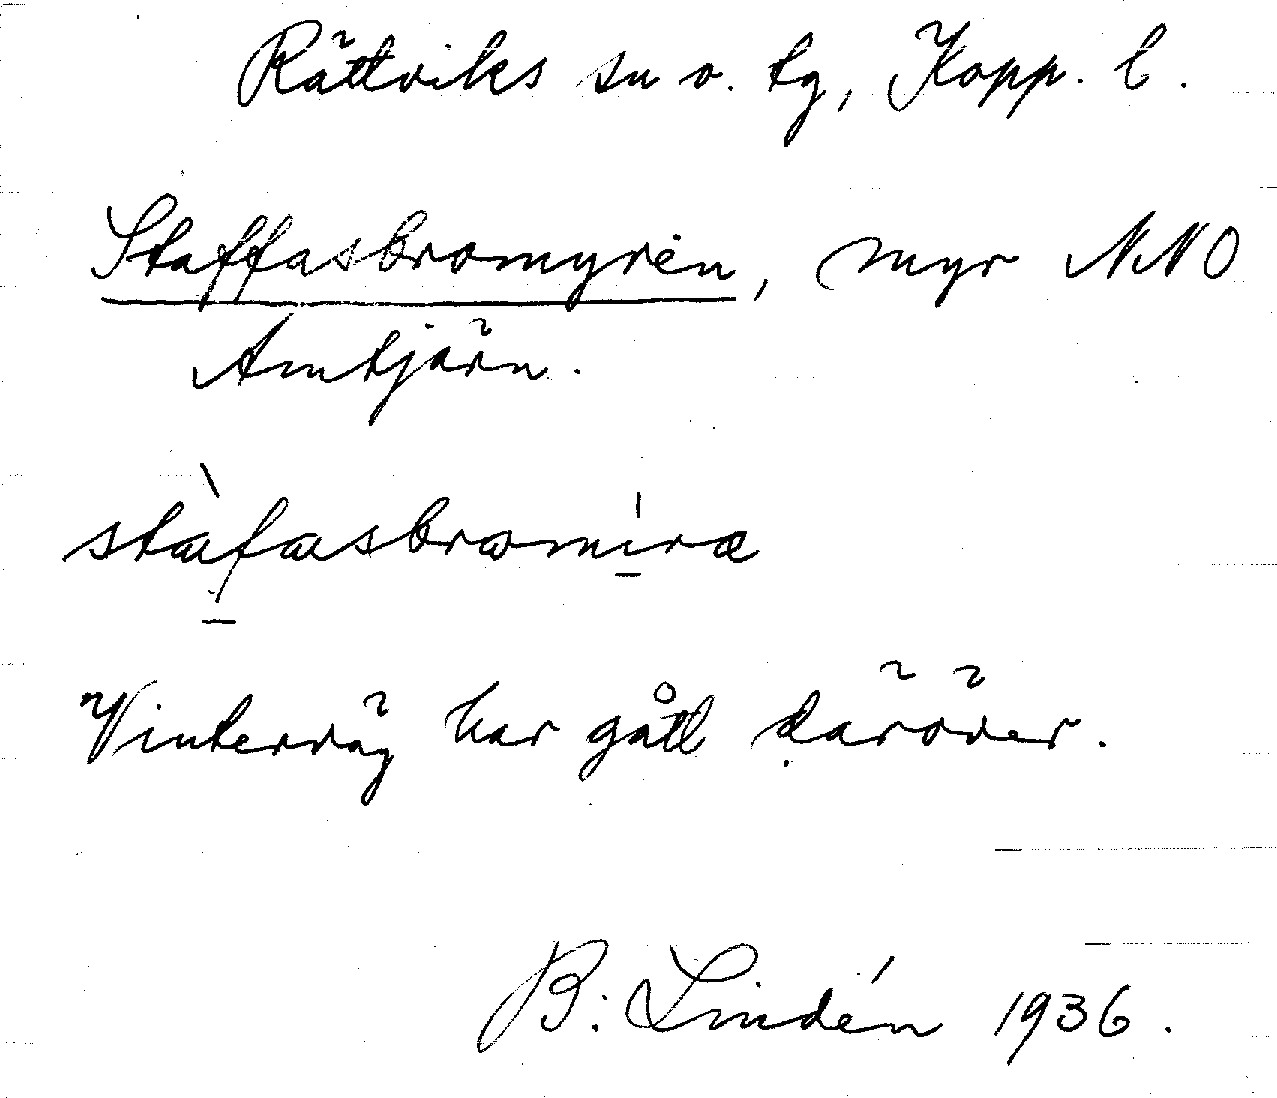 Rättviks sn o. tg, Kopp. l.
Staffasbromyren, myr NNO
Amtjärn.
stàfasbromíra
Vinterväg har gått däröver.
B. Lindén 1936.